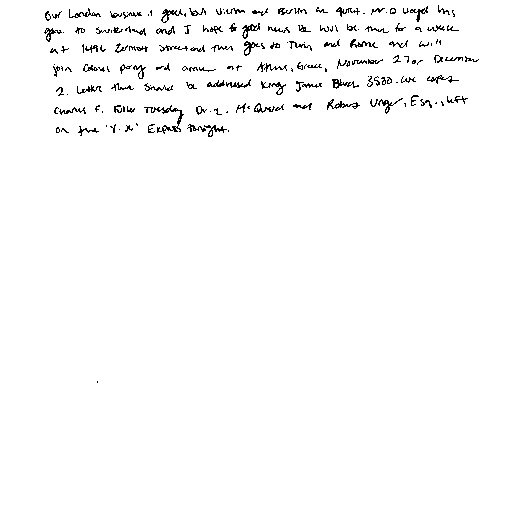 Our London business is good, but Vienna and Berlin are quiet. Mr. D. Lloyd has
gone to Switzerland and I hope for good news. He will be there for a week
at 1496 Zermott Street and then goes to Turin and Rome and will
join Colonel Parry and arrive at Athens, Greece, November 27 or December
2. Letters there should be addressed King James Blvd. 3580. We expect
Charles E. Fuller Tuesday. Dr. L. McQuaid and Robert Unger, Esq., left
on the 'Y.X.' Express tonight.